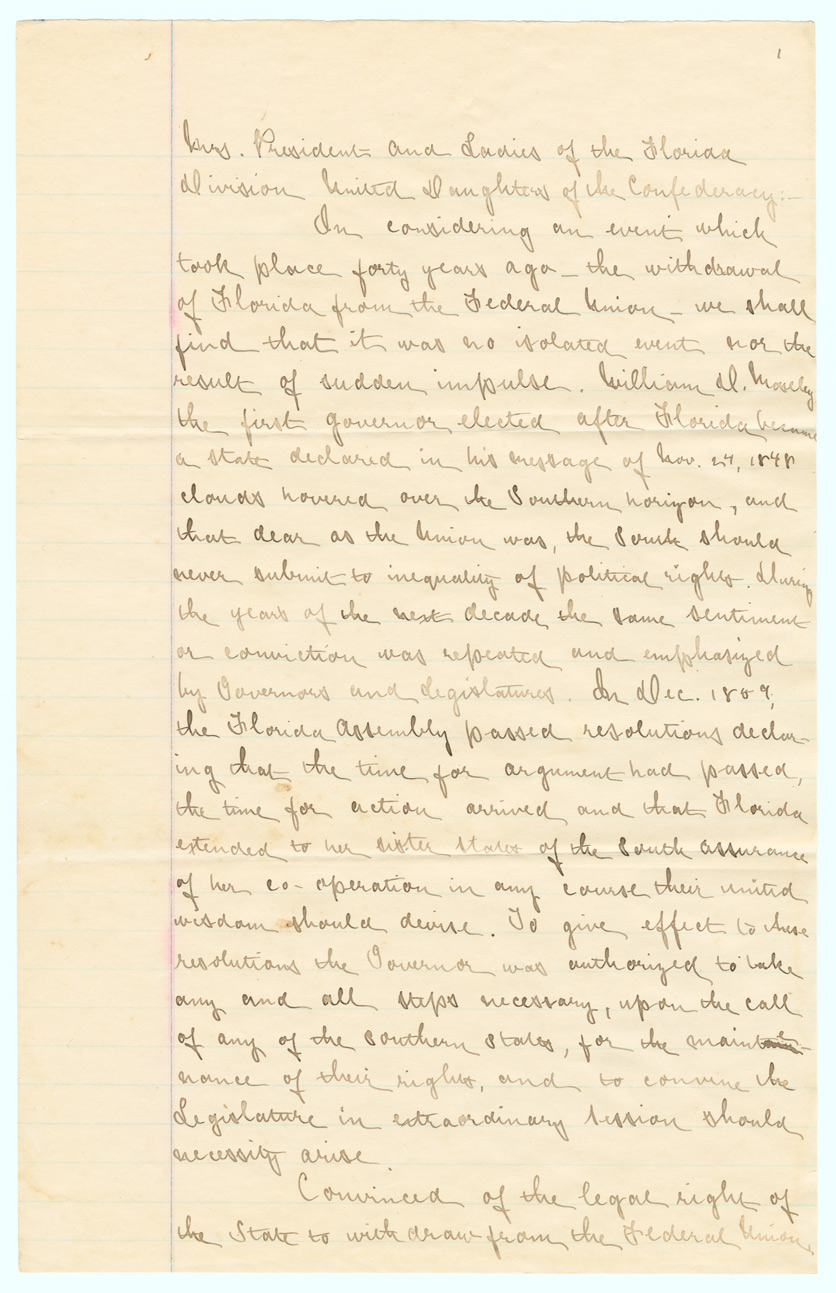 1
Mrs. President and Ladies of the Florida
Division United Daughters of the Confederacy:-
In considering an event which
took place forty years ago - the withdrawal
of Florida from the Federal Union - we shall
find that it was no isolated event nor the
result of sudden impulse. William D. Mosely
the first governor elected after Florida became
a state declared in his message of Nov. 27, 1848
clouds hovered over the Southern horizon, and
that dear as the Union was, the South should
never submit to inequality of political rights. During
the years of the next decade the same sentiment
or conviction was repeated and emphasized
by Governors and Legislatures. In Dec. 1859,
the Florida Assembly passed resolutions declar-
ing that the time for argument had passed,
the time for action arrived and that Florida
extended to her sister states of the South assurance
of her co-operation in any course their united
wisdom should devise. To give effect to these
resolutions the Governor was authorized to take
any and all steps necessary, upon the call
of any of the Southern States, for the mainte-
nance of their rights, and to convene the
Legislature in extraordinary session should
necessity arise.
Convinced of the legal right of
the State to withdraw from the Federal Union,